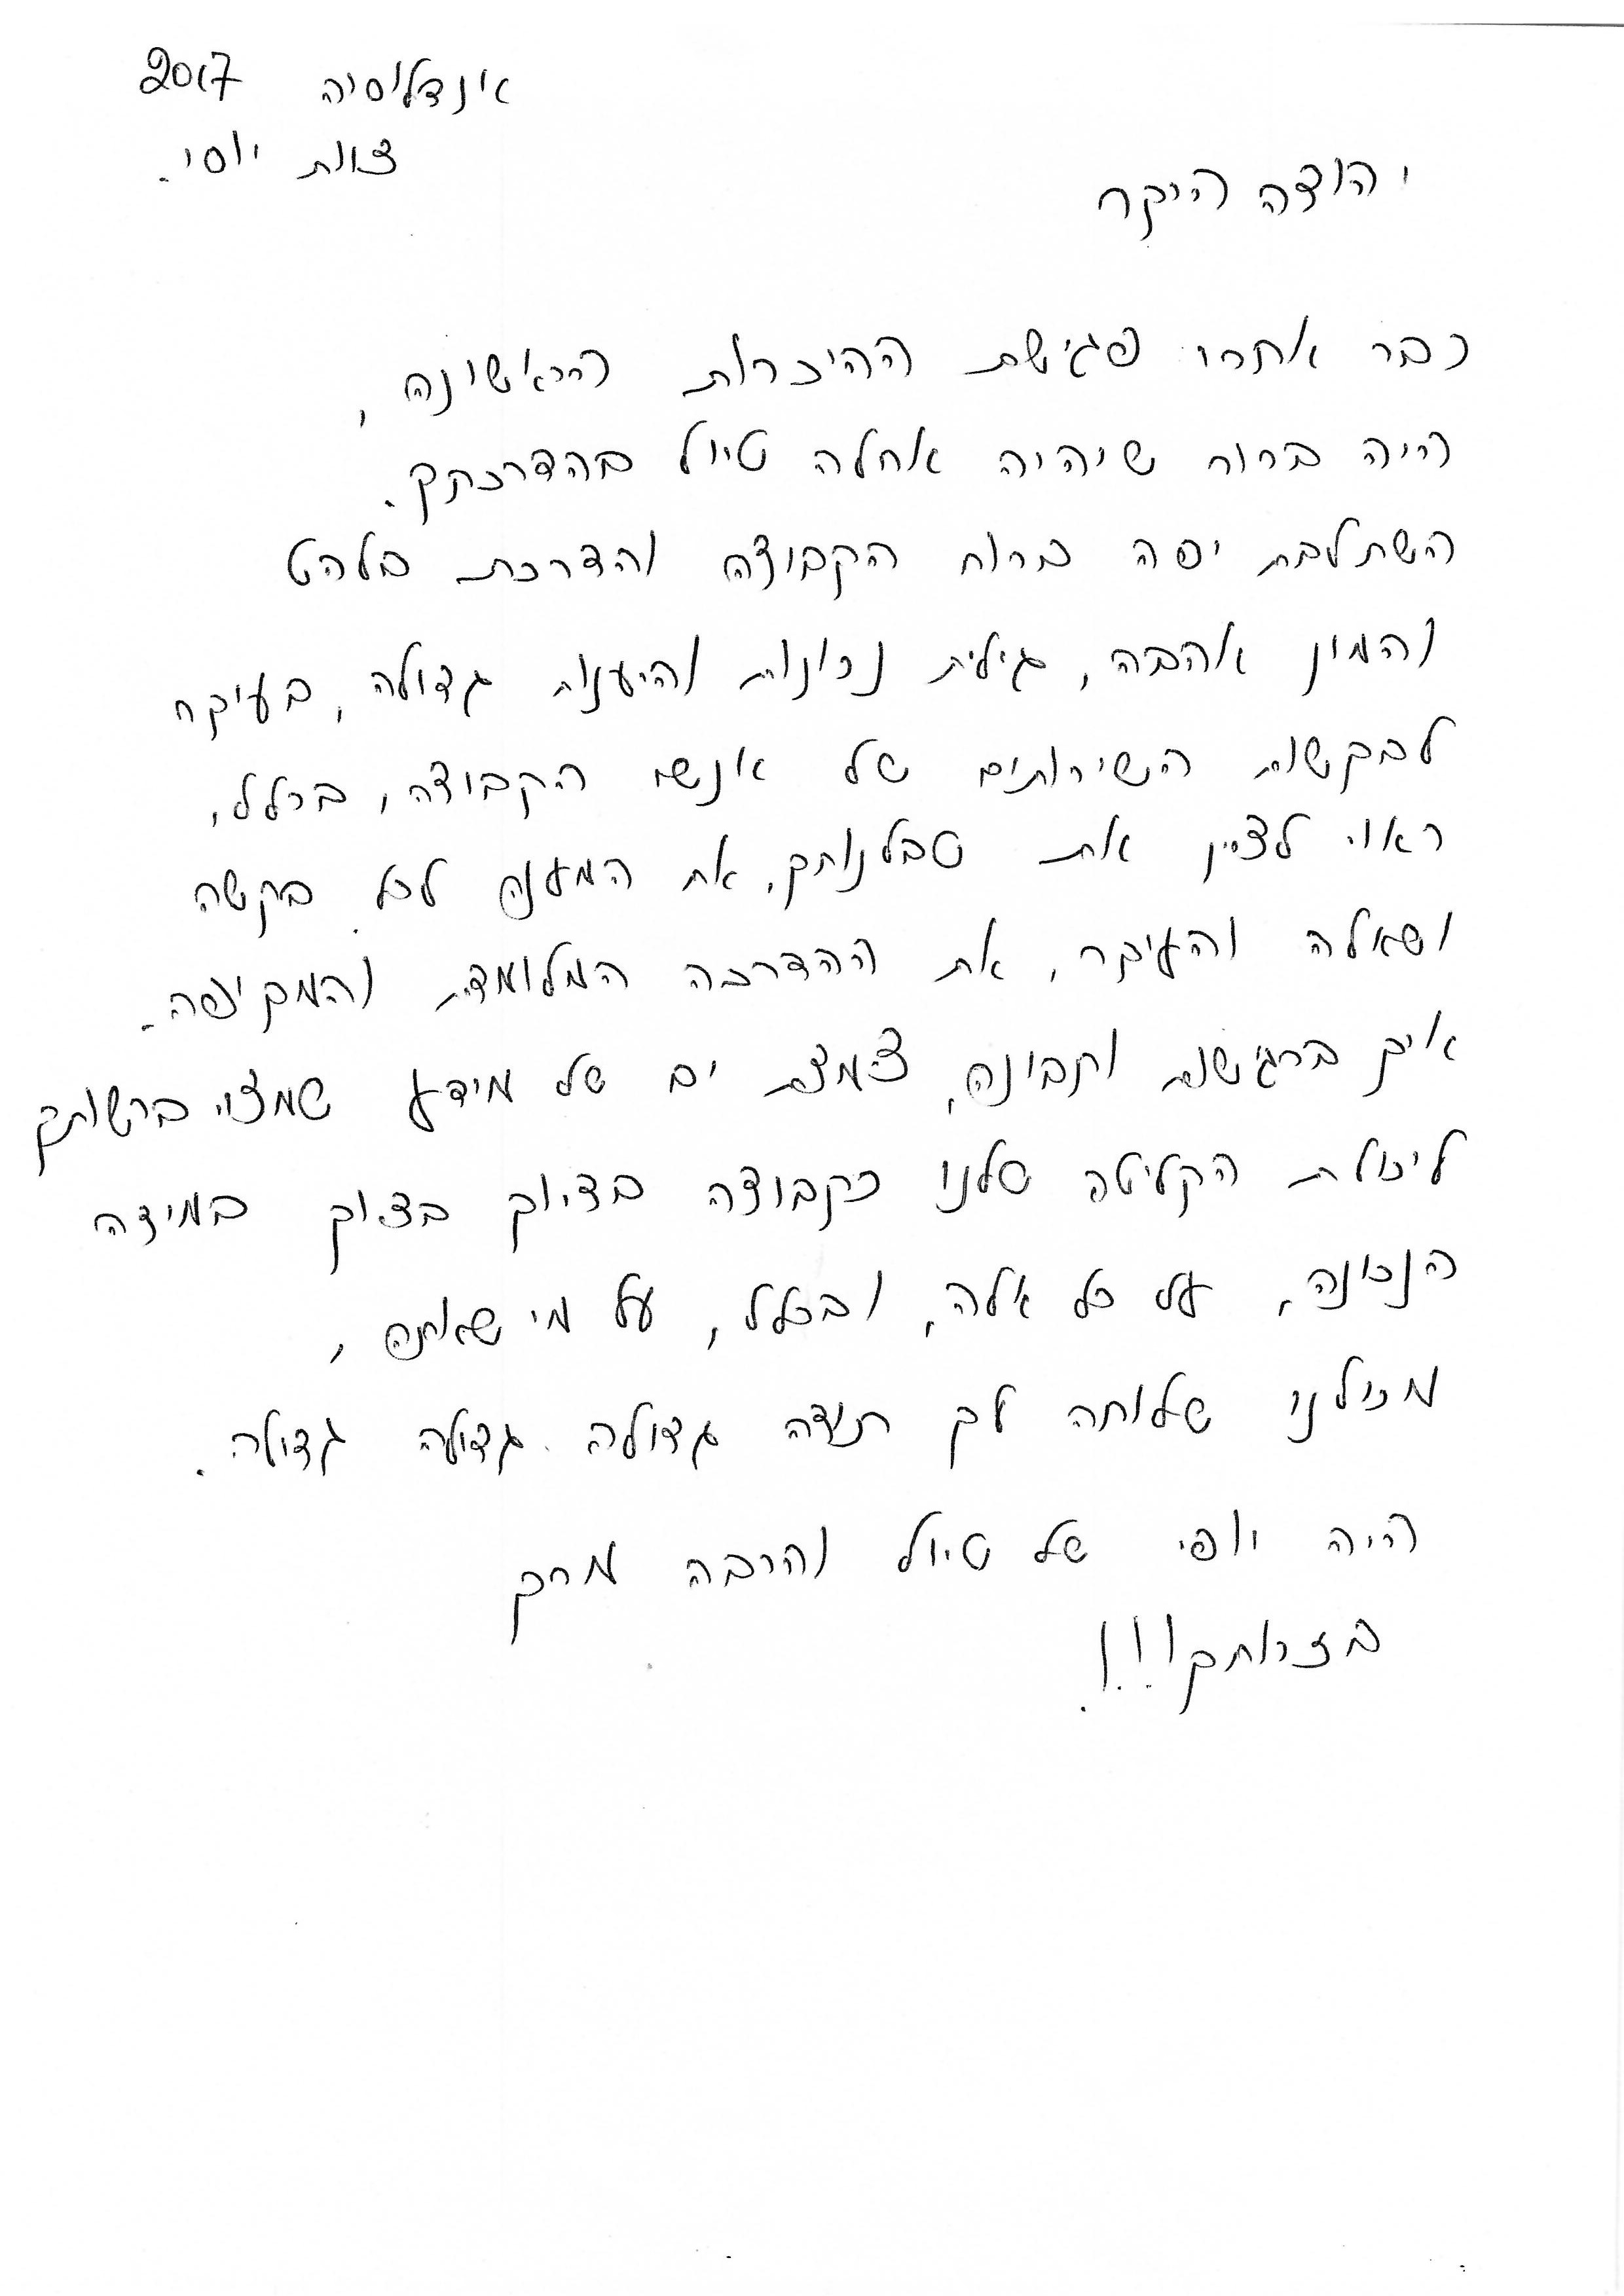 אינדלוסיה 2017
צוות יוסי.
יהודה היקר
כבר אחרי פגישת ההיכרות הראשונה,
היה ברור שיהיה אחלה טיול בהדרכתך.
השתלבת יפה ברוח הקבוצה והדרכת בלהט
והמון אהבה, גילית נכונות והיענות גדולה, בעיקר
לבקשות השירותים של אנשי הקבוצה, בכלל,
ראוי לציין את סבלנותך, את המענה לכל בקשה
ושאלה והעיקר, את ההדרכה המלומדת והמקיפה.
איך ברגישות ותבונה, צמצמת ים של מידע שמצוי ברשותך
ליכולת הקליטה שלנו כקבוצה בדיוק בדיוק במידה
הנכונה, על כל אלה, ובכלל, על מי שאתה,
מכולנו שלוחה לך תודה גדולה גדולה גדולה.
היה יופי של טיול והרבה מכך
בזכותך!!!